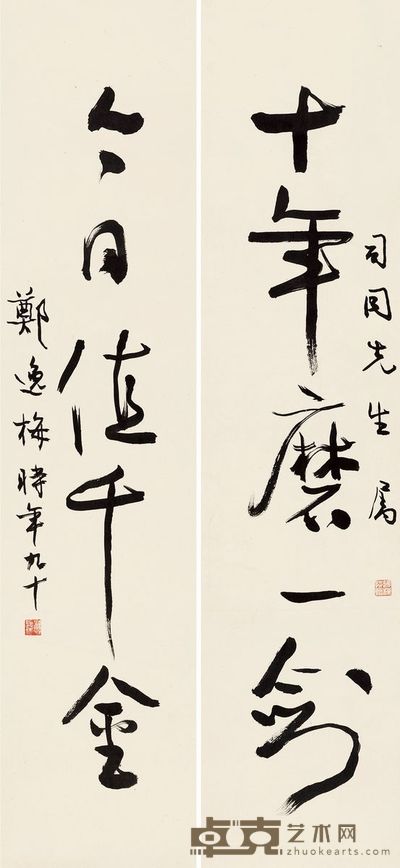 司同先生属
十年磨一剑
今日值千金
鄭逸梅時年九十
卓克艺术网
zhuokearts.com